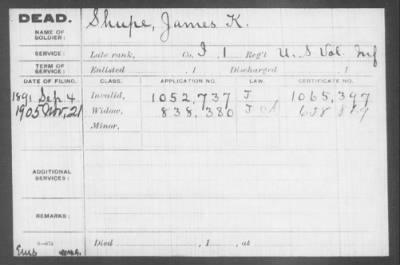 DEAD.
NAME OF SOLDIER: Shupe, James K.
SERVICE: Late rank, Co. I, 1 Reg't U. S Vol. Inf
TERM OF SERVICE: Enlisted , 1 Discharged , 1
DATE OF FILING. CLASS. APPLICATION NO. LAW. CERTIFICATE NO.
1891 Sep 4 Invalid, 1052,737 J 1065,397
1905 Nov, 21 Widow, 838,380
Minor,
ADDITIONAL SERVICES:
REMARKS:
Died , 1 , at